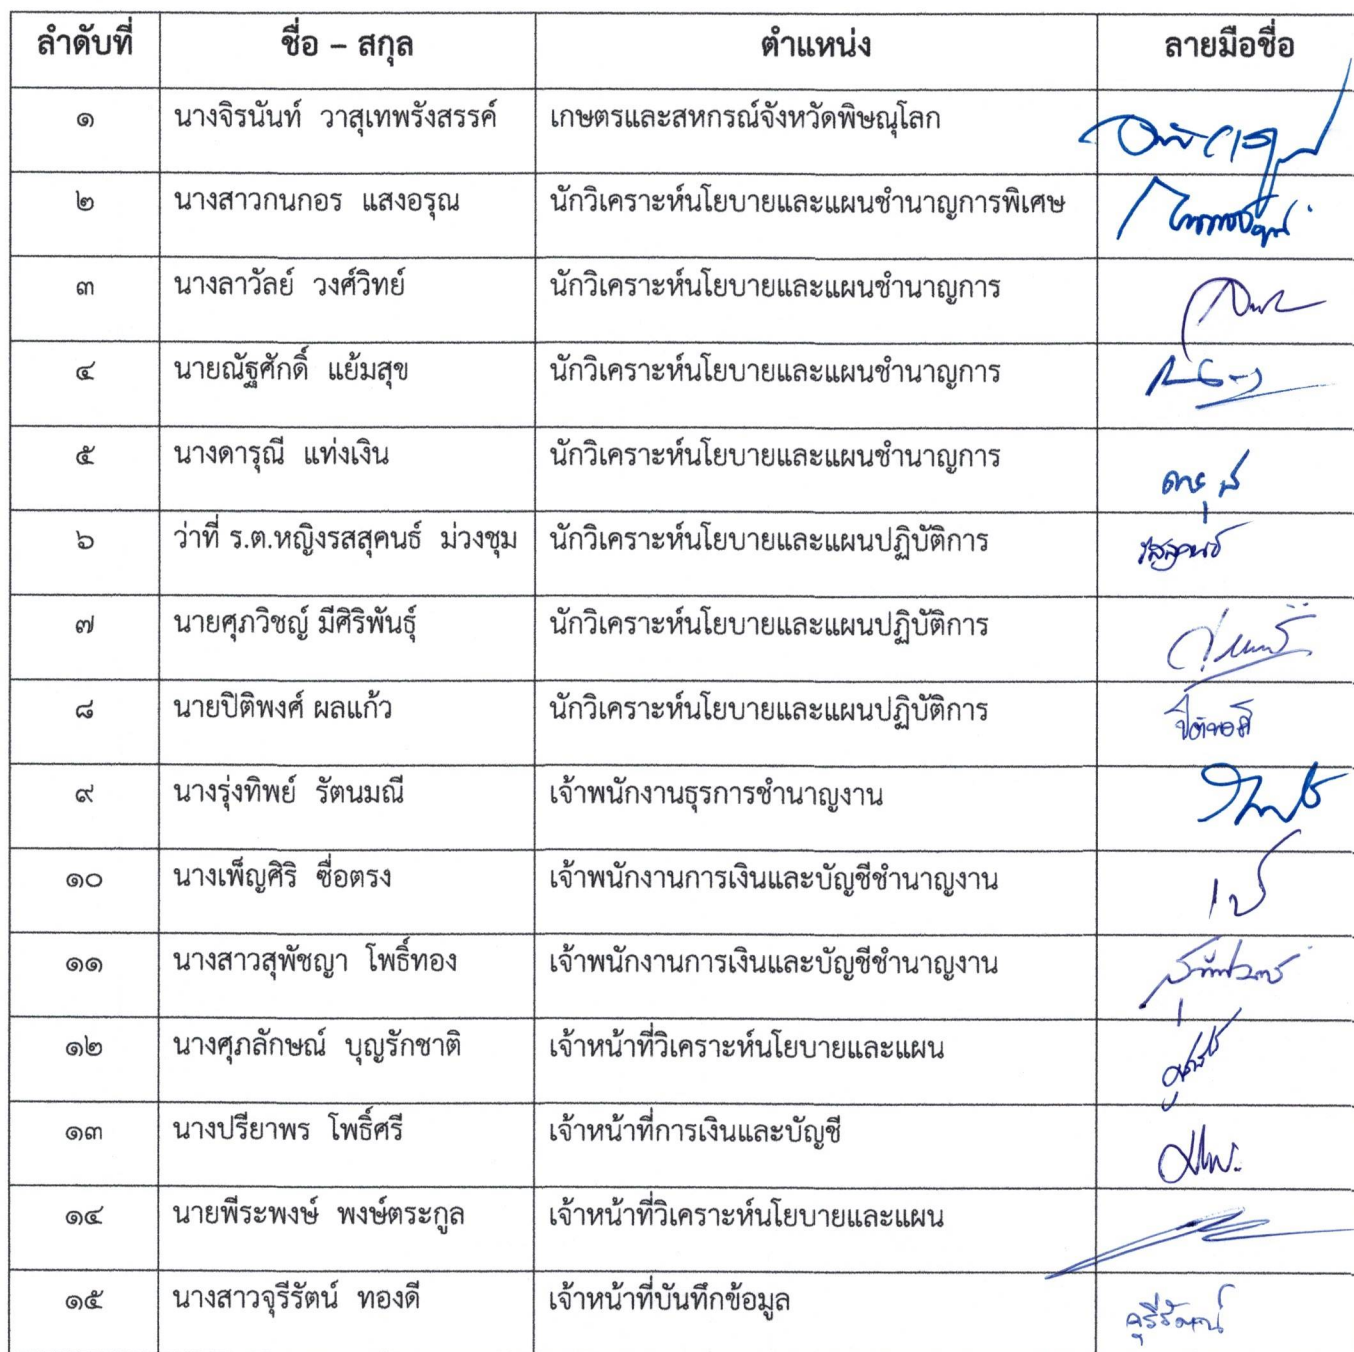 ลำดับที่ ชื่อ – สกุล ตำแหน่ง ลายมือชื่อ
๑ นางจิรนันท์ วาสุเทพรังสรรค์ เกษตรและสหกรณ์จังหวัดพิษณุโลก
๒ นางสาวกนกอร แสงอรุณ นักวิเคราะห์นโยบายและแผนชำนาญการพิเศษ
๓ นางลาวัลย์ วงศ์วิทย์ นักวิเคราะห์นโยบายและแผนชำนาญการ
๔ นายณัฐศักดิ์ แย้มสุข นักวิเคราะห์นโยบายและแผนชำนาญการ
๕ นางดารุณี แท่งเงิน นักวิเคราะห์นโยบายและแผนชำนาญการ
๖ ว่าที่ ร.ต.หญิงรสสุคนธ์ ม่วงชุม นักวิเคราะห์นโยบายและแผนปฏิบัติการ รสสุคนธ์
๗ นายศุภวิชญ์ มีศิริพันธุ์ นักวิเคราะห์นโยบายและแผนปฏิบัติการ
๘ นายปิติพงศ์ ผลแก้ว นักวิเคราะห์นโยบายและแผนปฏิบัติการ ปิติพงศ์
๙ นางรุ่งทิพย์ รัตนมณี เจ้าพนักงานธุรการชำนาญงาน
๑๐ นางเพ็ญศิริ ซื่อตรง เจ้าพนักงานการเงินและบัญชีชำนาญงาน
๑๑ นางสาวสุพัชญา โพธิ์ทอง เจ้าพนักงานการเงินและบัญชีชำนาญงาน
๑๒ นางศุภลักษณ์ บุญรักชาติ เจ้าหน้าที่วิเคราะห์นโยบายและแผน
๑๓ นางปรียาพร โพธิ์ศรี เจ้าหน้าที่การเงินและบัญชี
๑๔ นายพีระพงษ์ พงษ์ตระกูล เจ้าหน้าที่วิเคราะห์นโยบายและแผน
๑๕ นางสาวจุรีรัตน์ ทองดี เจ้าหน้าที่บันทึกข้อมูล จุรีรัตน์